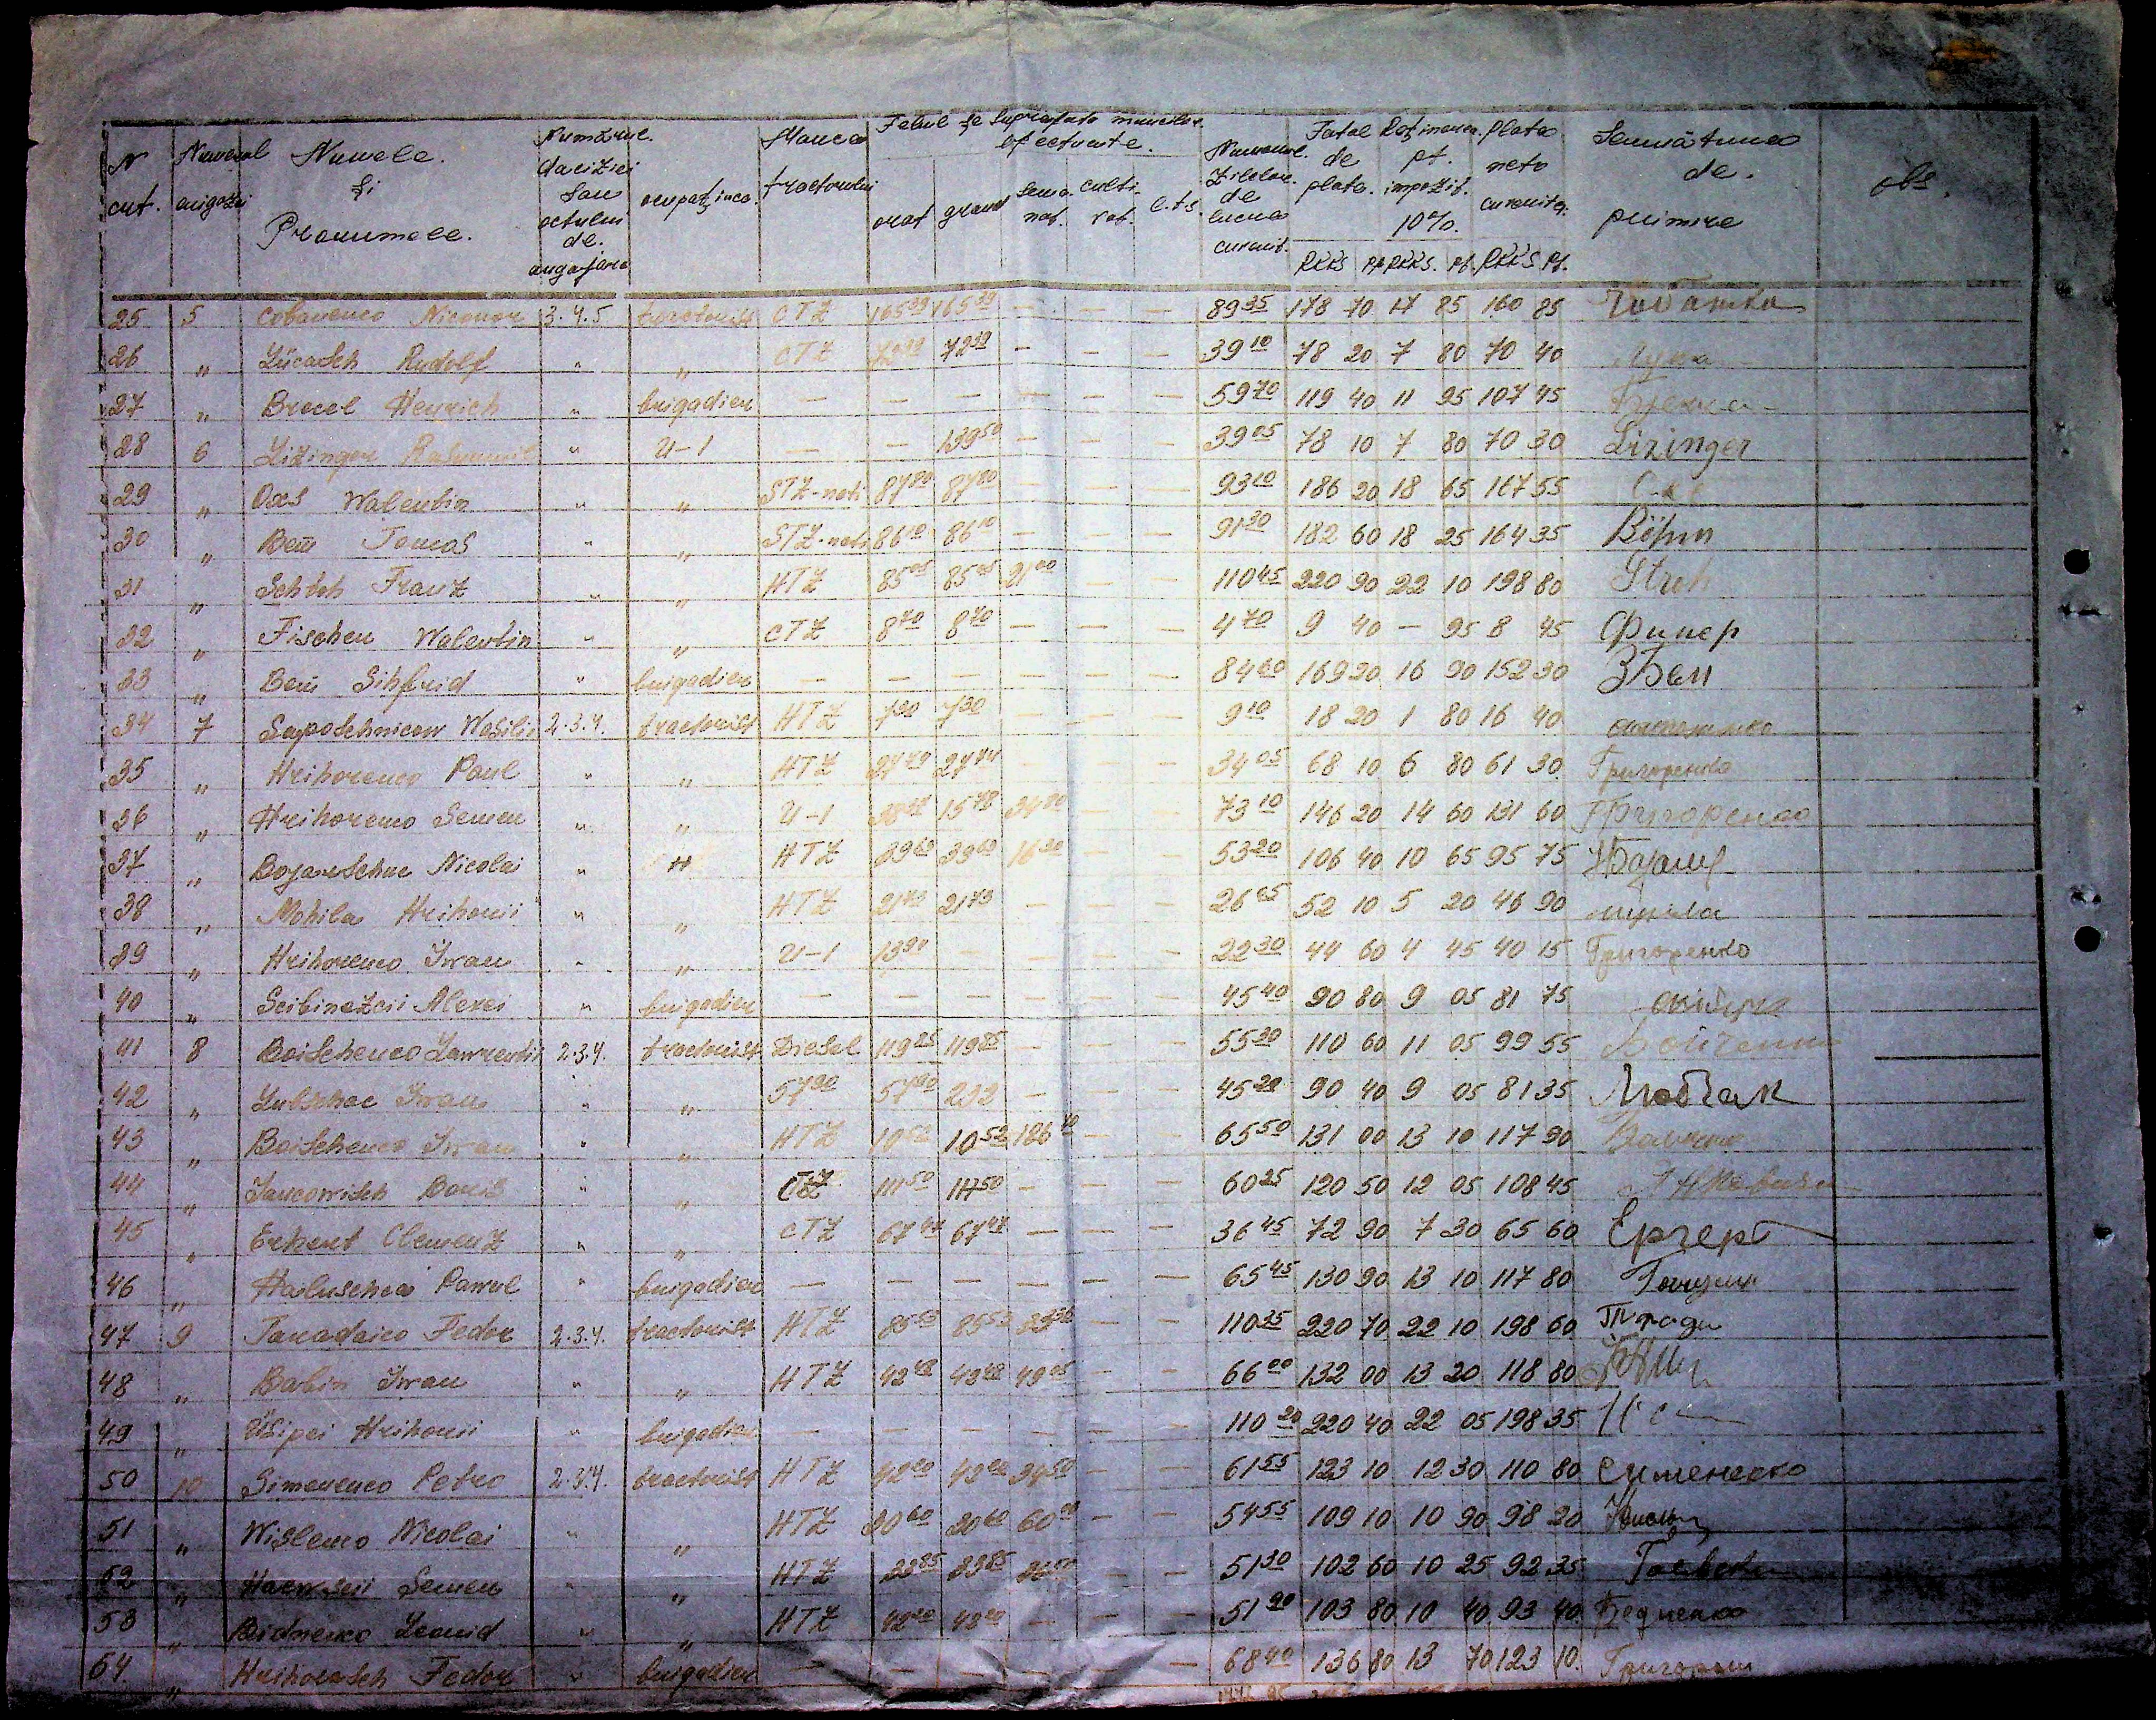 N crt. Numerul brigăzii Numele și Pronumele. Numărul deciziei sau actului de angajare ocupațiunea Marca tractorului Felul și Suprafața muncilor efectuate. arat grapat semănat. cultivat. e.t.s. Numărul zilelor de lucru curenit. Total de plata. RKKS Pf Reținerea pt. impozit. 10% RKKS. Pf. Plata neto cuvenită. RKKS Pf. Semnătura de primire obs.
25 5 Cobanenco Niconor 3.4.5 tractorist CTZ 165 39 165 39 — — — 89 35 178 70 17 85 160 85
26 " Lücasch Rudolf " " CTZ 72 39 — — — 39 10 78 20 7 80 70 40 Лука
27 " Brecel Henrich " brigadier — — — — — — 59 70 119 40 11 95 107 45
28 6 Lizinger " U-1 — — 139 50 — — — 39 05 78 10 7 80 70 30 Lizinger
29 " Oxs Walentin " " STZ-nati 87 80 87 80 — — — 93 10 186 20 18 65 167 55
30 " Bem Tomas " " STZ-nati 86 10 86 10 — — — 91 30 182 60 18 25 164 35 Böhm
31 " Schtoh Franz " " HTZ 85 05 85 05 21 00 — — 110 45 220 90 22 10 198 80 Stroh
32 " Fischer Walentin " " CTZ 8 40 8 40 — — — 4 70 9 40 — 95 8 45 Фишер
33 " Bem Sihfrid " brigadier — — — — — — 84 60 169 20 16 90 152 30 ЗБем
34 7 Saposchnicow Wasilii 2.3.4. tractorist HTZ 7 30 7 30 — — — 9 10 18 20 1 80 16 40
35 " Hrihorenco Paul " " HTZ 27 44 27 44 — — — 34 05 68 10 6 80 61 30 Григоренко
36 " Hrihorenco Semen " " U-1 15 78 — — 73 10 146 20 14 60 131 60 Григоренко
37 " Bojarschuc Nicolai " " HTZ 39 60 39 60 16 30 — — 53 20 106 40 10 65 95 75
38 " Mohila Hrihorii " " HTZ 21 73 21 73 — — — 26 05 52 10 5 20 46 90
39 " Hrihorenco Iwan " " U-1 13 90 — — — — 22 30 44 60 4 45 40 15 Григоренко
40 " Scibinezcii Alexei " brigadier — — — — — — 45 40 90 80 9 05 81 75
41 8 Boischenco Lawrentii 2.3.4. tractorist Diesel 119 25 119 25 — — — 55 30 110 60 11 05 99 55 Бойченко
42 " Lubschac Iwan " " 57 90 57 90 232 — — — 45 20 90 40 9 05 81 35 Любчак
43 " Boischenco Iwan " " HTZ 10 52 10 52 186 40 — — 65 50 131 00 13 10 117 90
44 " Jancowisch Boris " " CTZ 111 50 111 50 — — — 60 25 120 50 12 05 108 45
45 " Erhert Clemenz " " CTZ 67 47 67 47 — — — 36 45 72 90 7 30 65 60 Ергерт
46 " Haluschca Pawel " brigadier — — — — — — 65 45 130 90 13 10 117 80
47 9 Taradaico Fedor 2.3.4. tractorist HTZ 85 53 85 53 — — 110 35 220 70 22 10 198 60
48 " Babin Iwan " " HTZ 42 48 42 48 49 05 — — 66 00 132 00 13 20 118 80
49 " Usipei Hrihorii " brigadier — — — — — — 110 20 220 40 22 05 198 35
50 10 Simenenco Petro 2.3.4. tractorist HTZ 42 00 42 00 34 50 — — 61 55 123 10 12 30 110 80 Сименеско
51 " Nislenco Nicolai " " HTZ 20 60 20 60 60 — — 54 55 109 10 10 90 98 20
52 " Semen " " HTZ 23 85 23 85 — — 51 30 102 60 10 25 92 35
53 " Bidnenco Leonid " " HTZ 42 20 42 20 — — — 51 90 103 80 10 40 93 40 Бедненко
54. " Hrihorasch Fedor " brigadier — — — — — — 68 40 136 80 13 70 123 10. Григораш